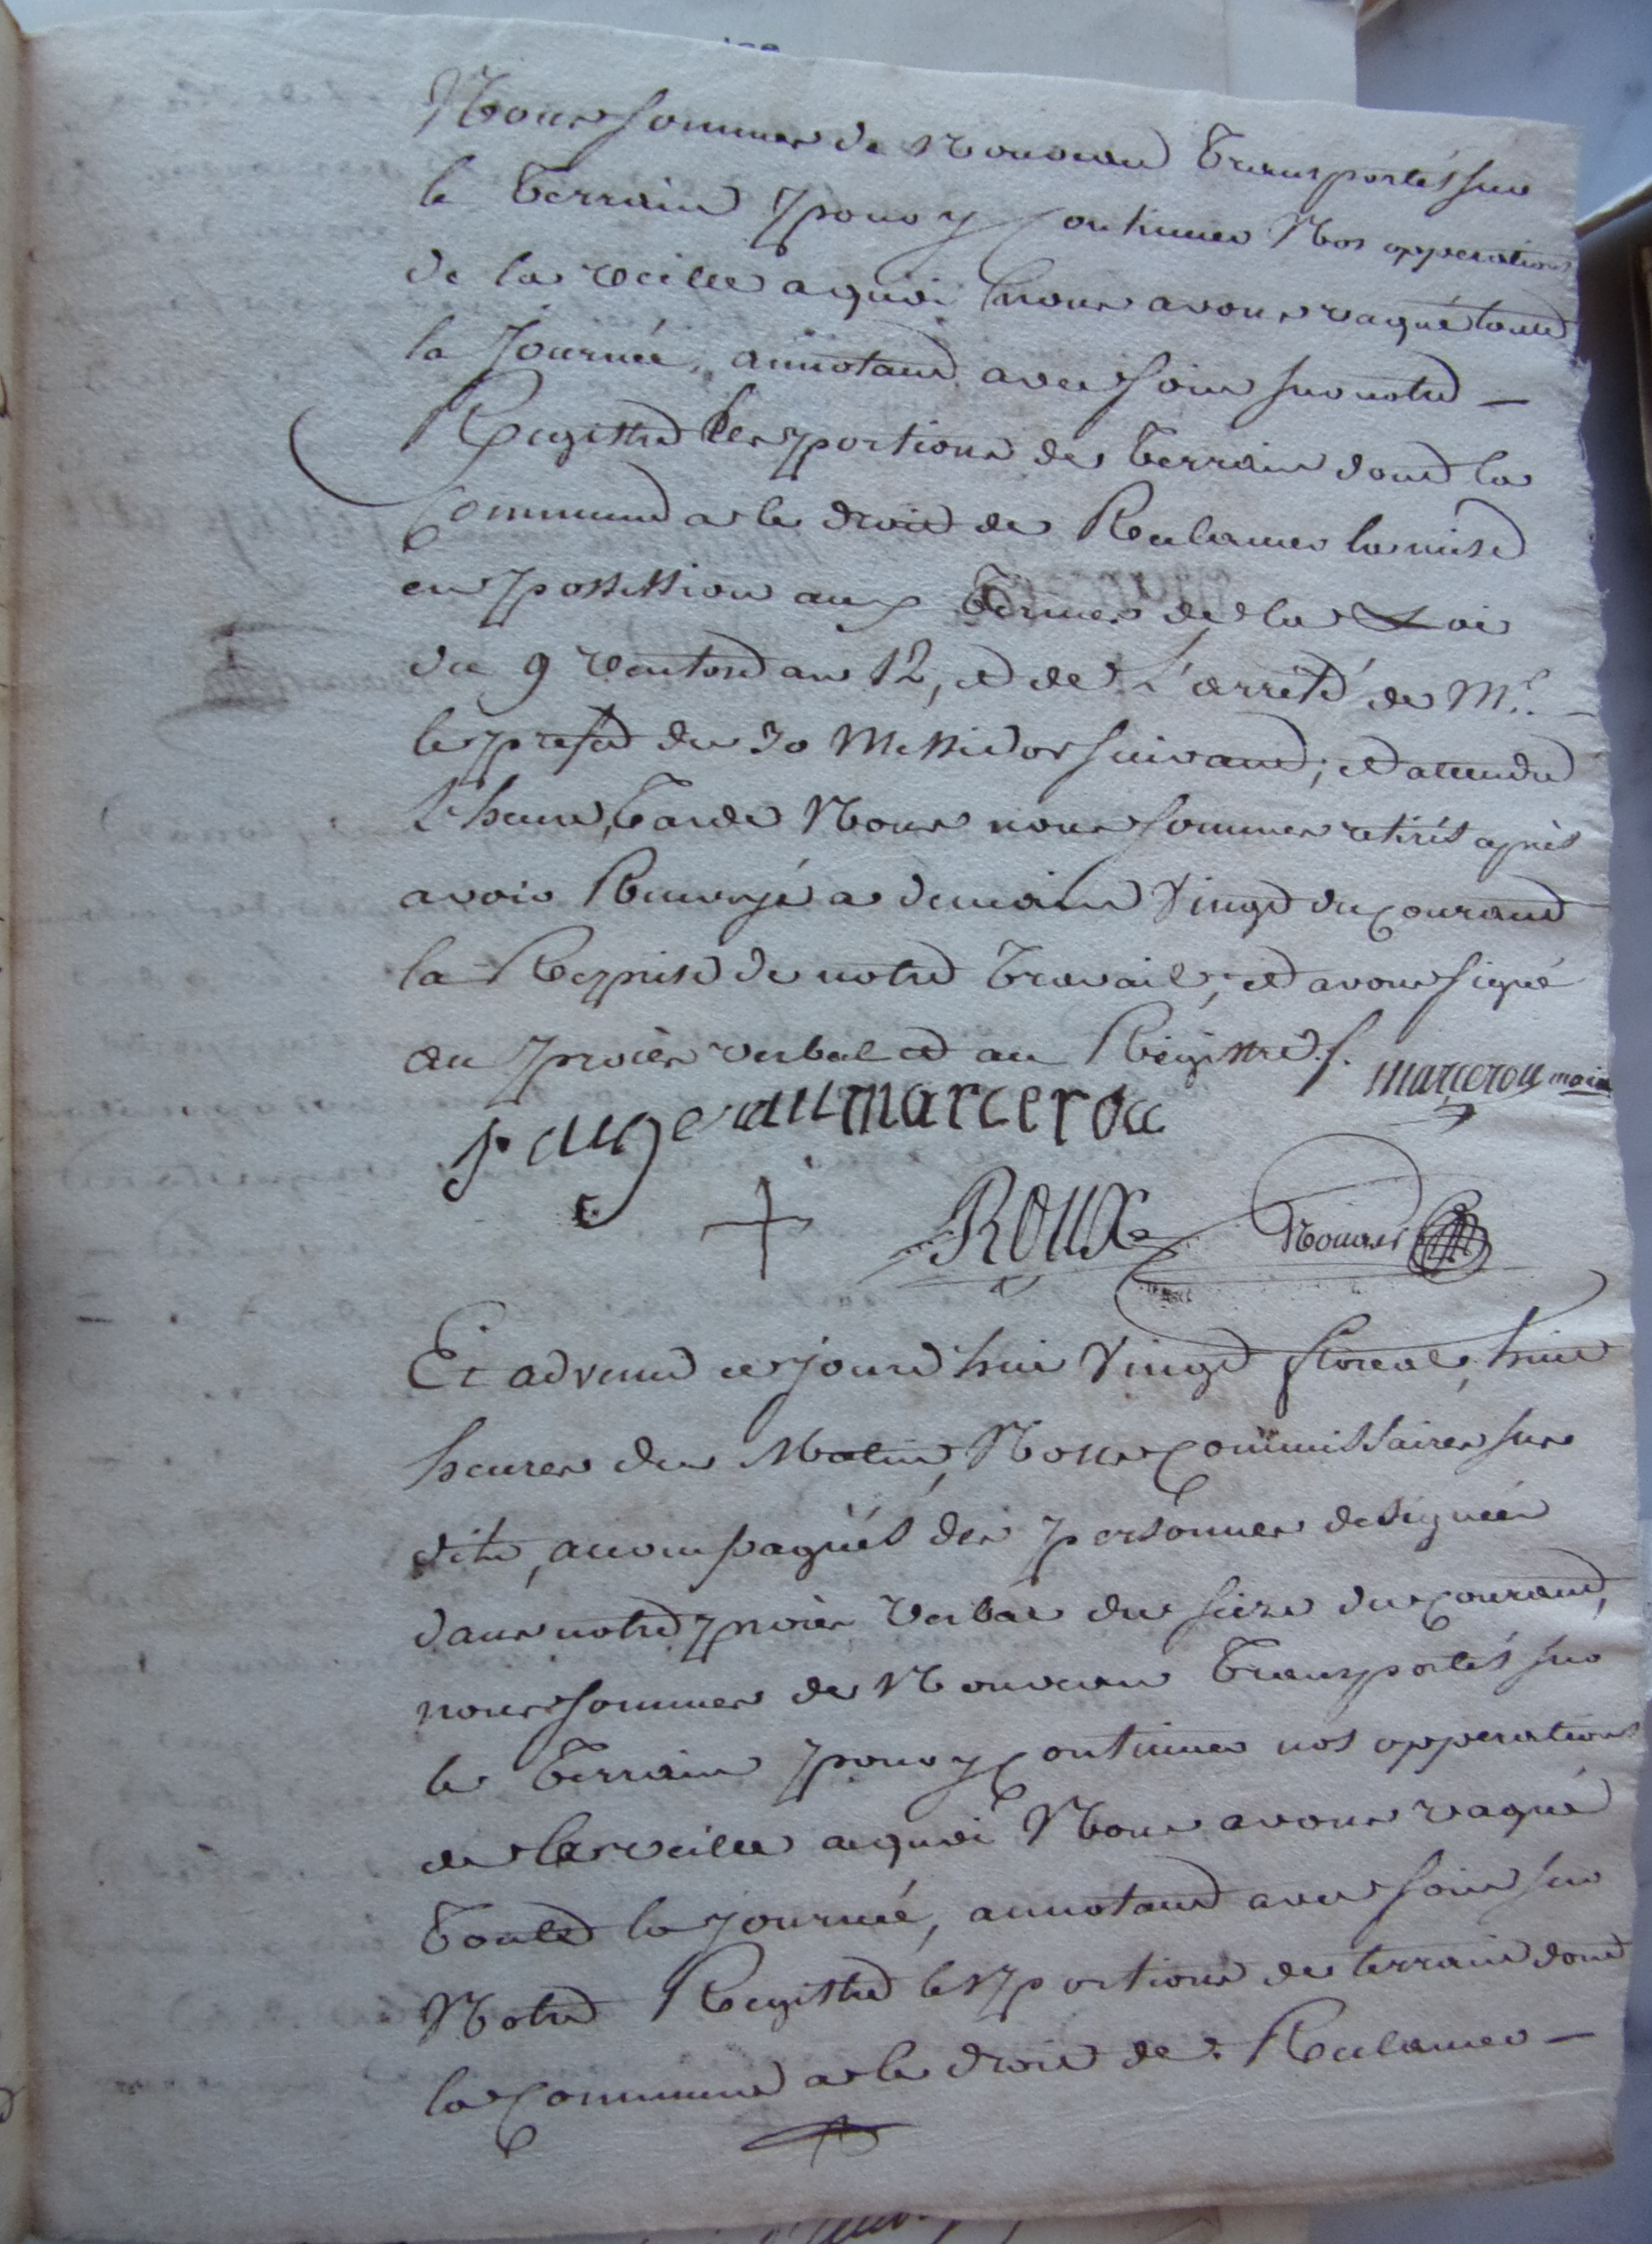 Nous sommes de Nouveau Transportés sur
le Terrain pour y Continuer Nos opperations
de la veille a quoi nous avons vaqué toute
la Journée, annotant avec soin sur notre —
Registre les portions de Terrain dont la
Commune a le droit de Reclamer la mise
en possession aux Termes de la Loi
du 9 ventose an 12, et de L'arreté de Mr.
le prefet du 30 Messidor suivant; et attendu
L'heure Tarde Nous nous sommes retirés après
avoir Renvoyé a demain Vingt du Courant
la Reprise de notre Travail, et avons signé
au procès verbal et au Régistre.
marcerou maire
faugerau marcerou
+ ROUX
Et advenu ce jourd'hui Vingt floreal, huit
heures du Matin, Nous Commissaires sus
dits, accompagnés des personnes designées
dans notre procès verbal du seize du Courant,
nous sommes de Nouveau Transportés sur
le Terrain pour y Continuer nos opperations
de la veille a quoi Nous avons vaqué
Toute la journée, annotant avec soin sur
Notre Registre les portions de terrain dont
la Commune a le droit de Reclamer —